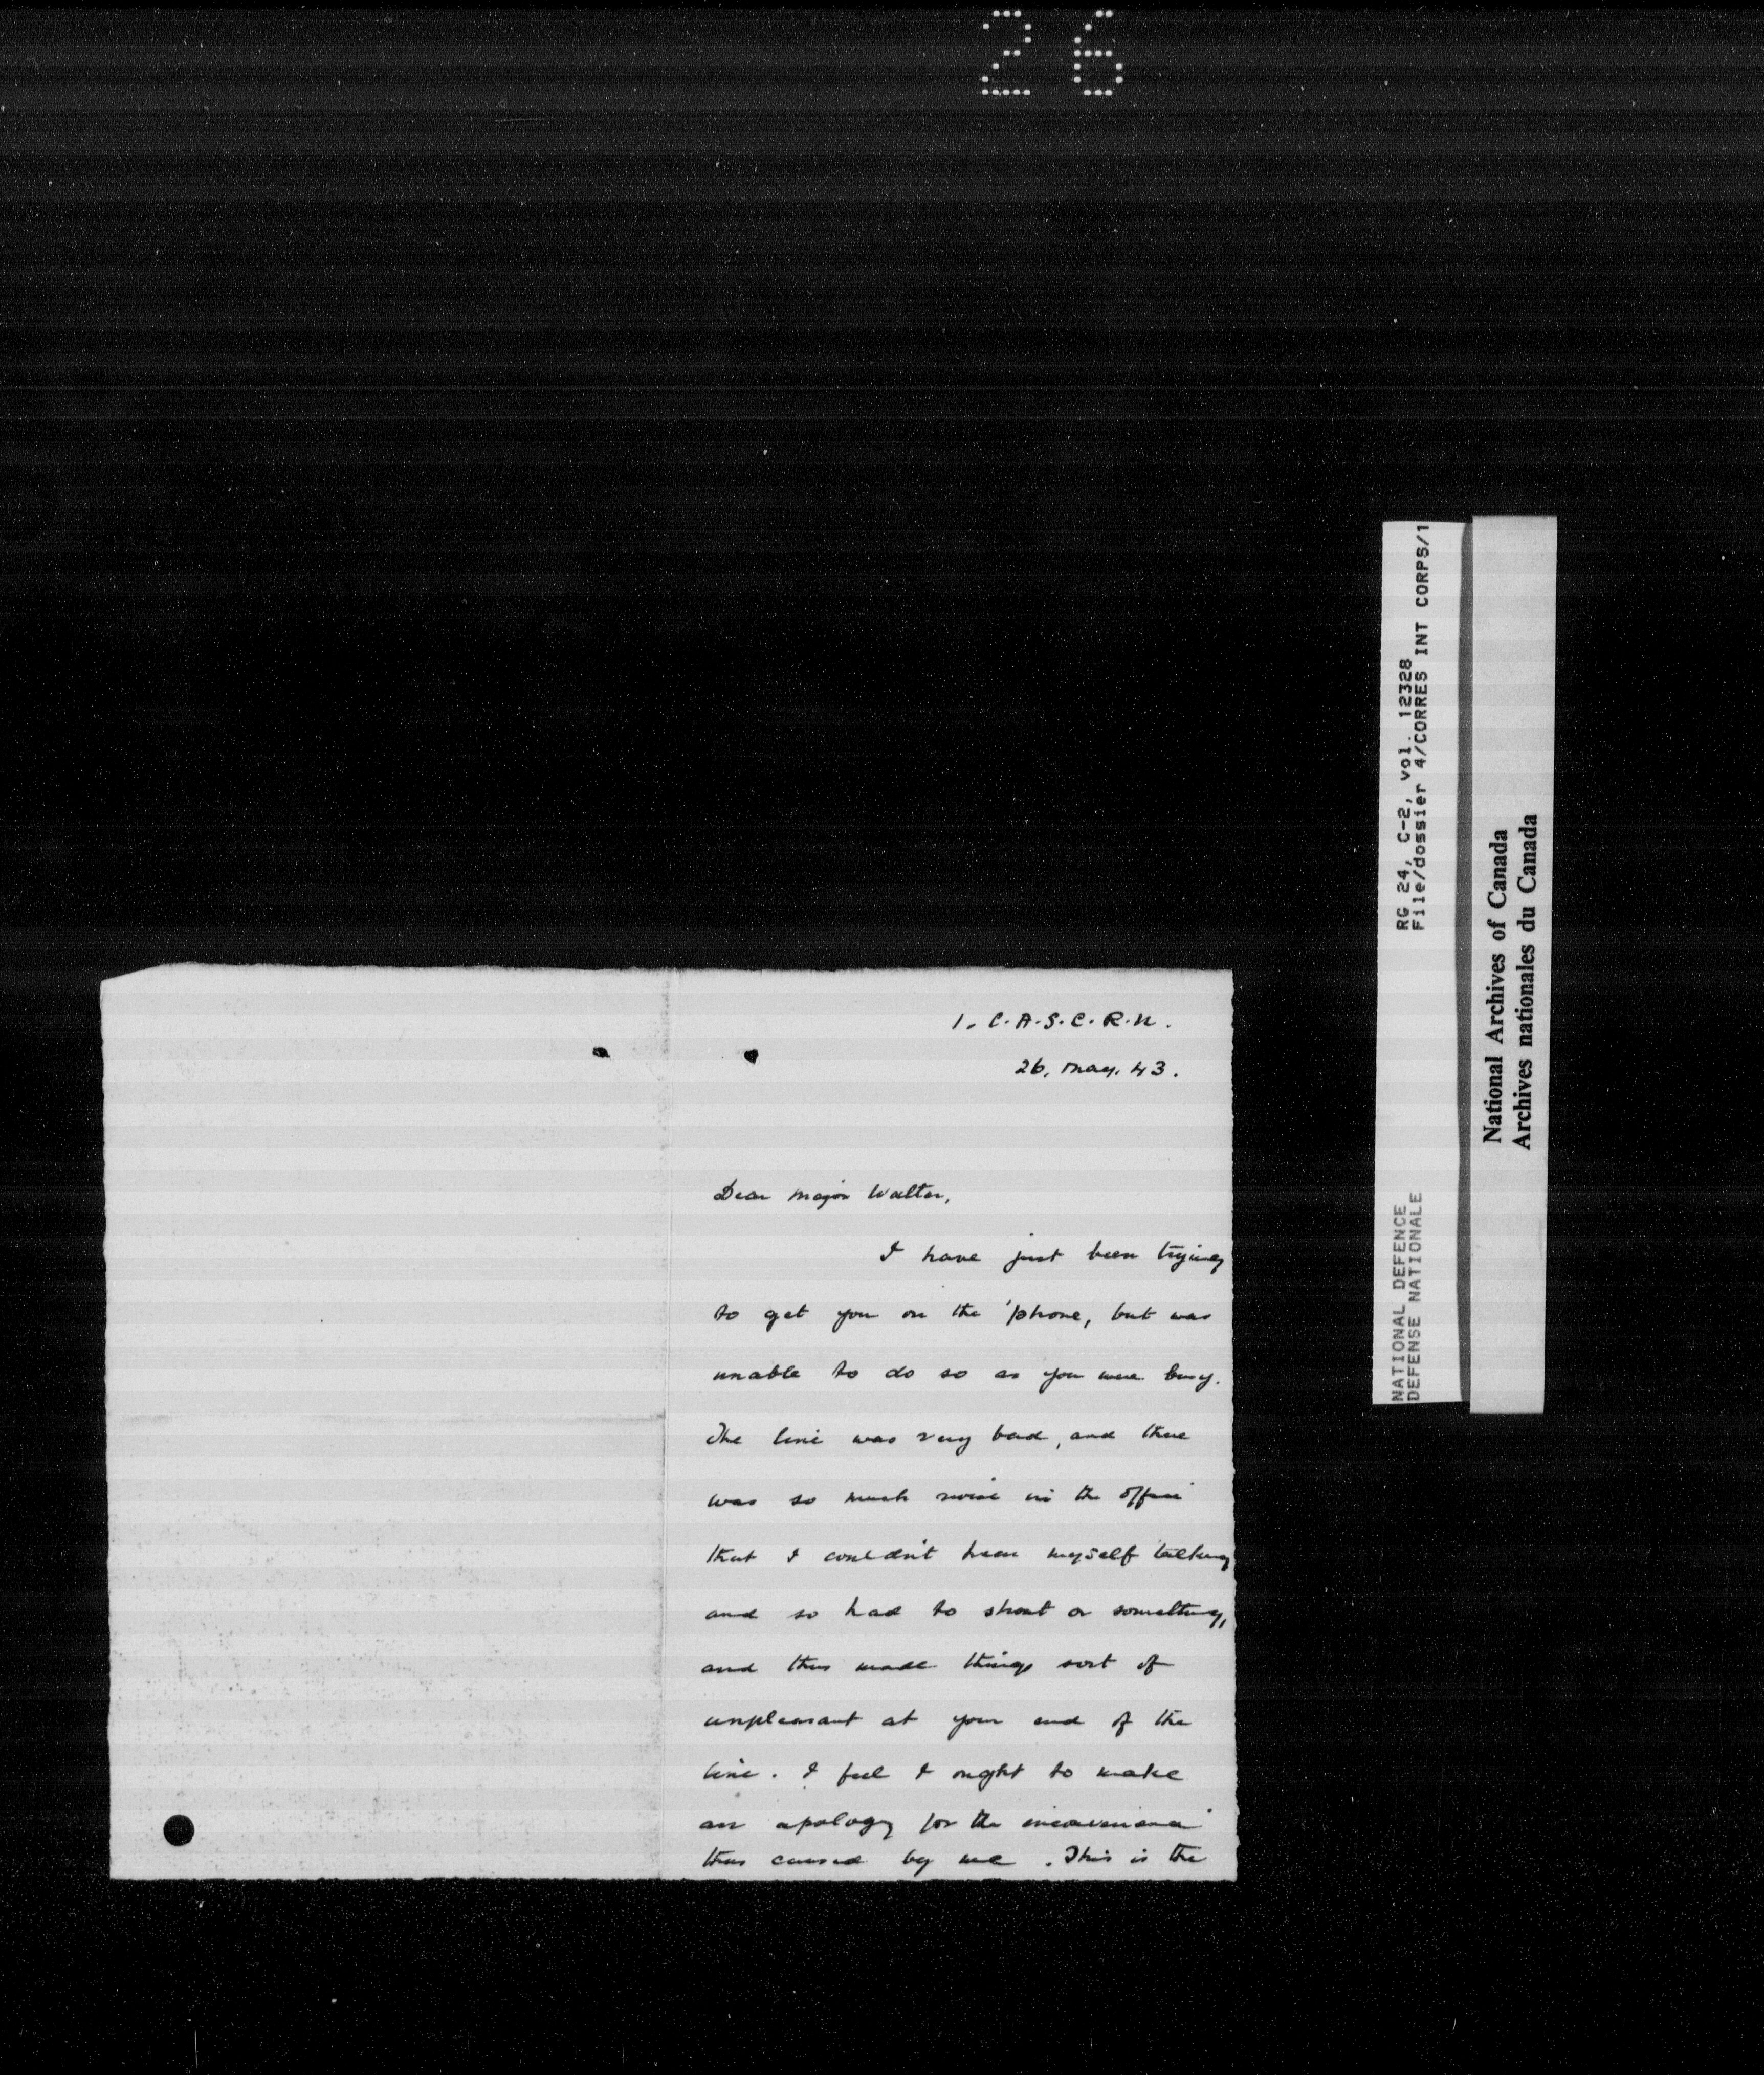 26
1. C.A.S.C.R.U.
26, May, 43.
Dear Major Walter,
I have just been trying
to get you on the 'phone, but was
unable to do so as you were busy.
The line was very bad, and there
was so much noise in the office
that I couldn't hear myself talking
and so had to shout or something,
and thus made things sort of
unpleasant at your end of the
line. I feel I ought to make
an apology for the inconvenience
thus caused by me. This is the
NATIONAL DEFENCE
DEFENSE NATIONALE
RG 24, C-2, vol. 12328
File/dossier 4/CORRES INT CORPS/1
National Archives of Canada
Archives nationales du Canada